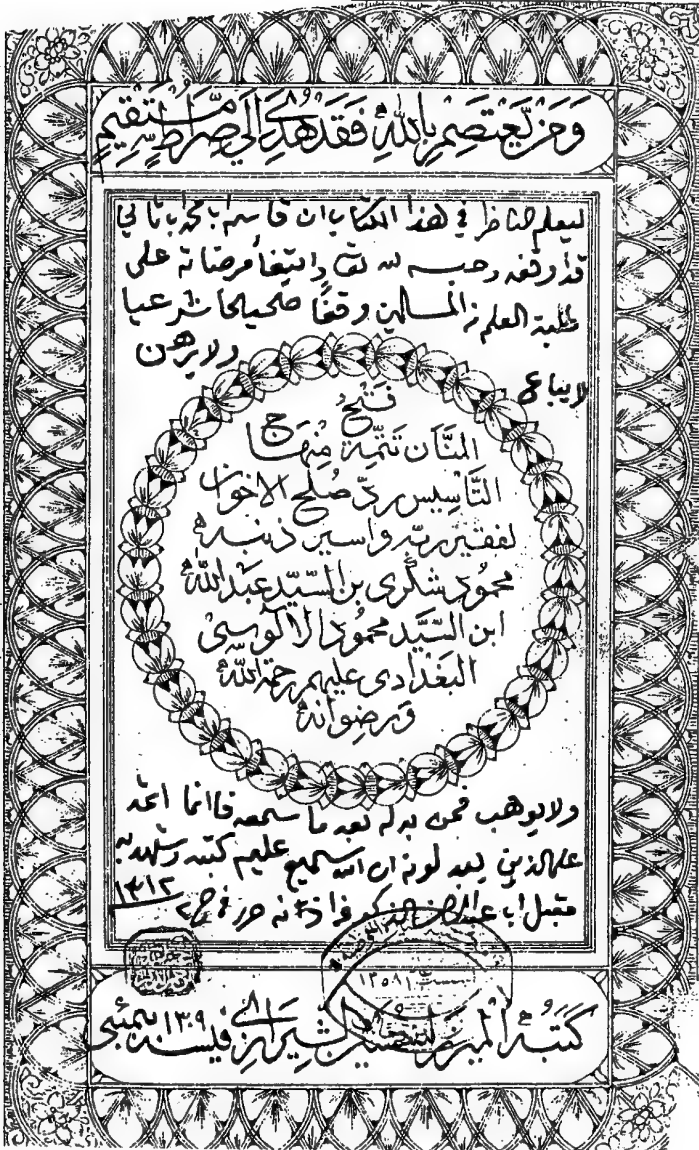 وَمَنْ يَعْتَصِمْ بِاللهِ فَقَدْ هُدِيَ إِلَى صِرَاطٍ مُسْتَقِيمٍ
ليعلم الناظر في هذا الكتاب ان قاسم ابن محمد ال ثاني
قد وقفه وحبسه لله تعا وابتغأ مرضاته على
طلبة العلم من المسلمين وقفًا صحيحا شرعيا
لايباع ولايرهن
فَتْحُ
المنَّان تَتِمَّة مِنهَاج
التَّأسِيس ردّ صُلح الاخوان
لفقير ربّه واسير ذنبه
محمُود شكرى بن السّيّد عبد اللهُ
ابن السَّيّد محمُود الآلوسى
البَغْدادى عليهم رحمة اللهُ
ورضوانهُ
ولايوهب فمن بدله بعد ما سمعه فاانما اثمه
على الذين يبدلونه ان الله سميع عليم كتبه وشهد به
مقبل ابن عبدالرحمن الذكير حرر في ١٣١٢
١٣٥٨
كَتَبَهُ الميرزا الشيرازى فى سنه ١٣٠٩ بمبئى